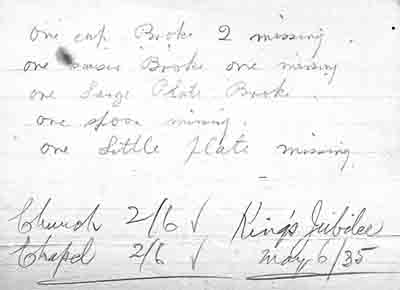 one cup Broke 2 missing.
one basin Broke one missing
one Large Plate Broke.
one spoon missing.
one Little plate missing
Church 2/6 ✓ King's Jubilee
Chapel 2/6 ✓ May 6/35